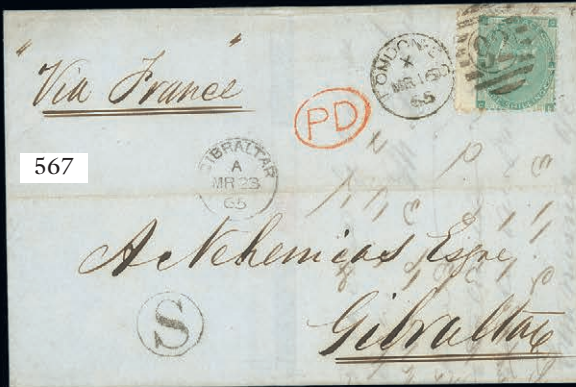 "Via France"
PD
LONDON
X
MR 16
65
567
GIBRALTAR
A
MR 23
65
A Nehemias Esqre
S
Gibraltar